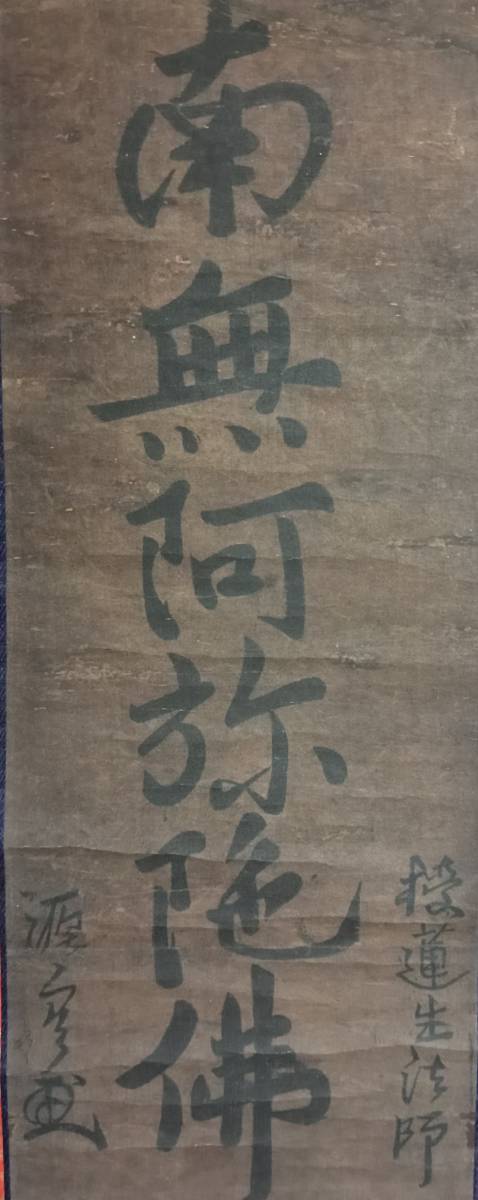 授蓮生法師
南無阿弥陀佛
源空